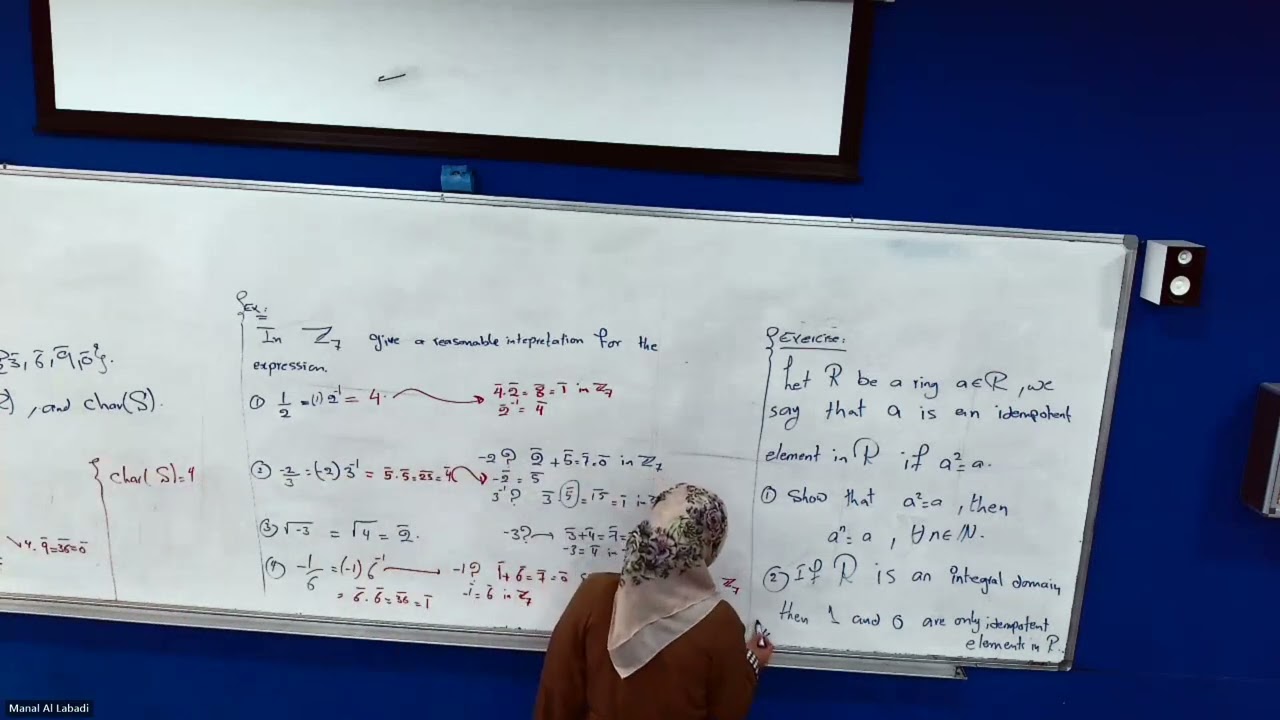 3̄, 6̄, 9̄, 0̄}.
, and char(S).
char(S)=4
4̄. 9̄=3̄6̄=0̄
Ex:
In Z₇ give a reasonable intepretation for the
expression.
① 1/2 =(1) 2⁻¹ = 4. 4̄.2̄=8̄=1̄ in Z₇
2̄⁻¹=4̄
② -2/3 =(-2) 3⁻¹ = 5̄.5̄=2̄5̄=4̄ -2? 2̄+5̄=7̄=0 in Z₇
-2̄=5̄
3⁻¹? 3̄.5̄=1̄5̄=1̄ in
③ √-3 = √4̄ = 2̄. -3? → 3̄+4̄=7̄=
-3=4̄ in
④ -1/6 =(-1) 6⁻¹ -1? 1̄+6̄=7̄=0̄
= 6̄.6̄=3̄6̄=1̄ -1̄=6̄ in Z₇
Z₇
Exercise:
Let R be a ring a∈R, we
say that a is an idempotent
element in R if a²=a.
① Show that a²=a, then
aⁿ=a, ∀n∈N.
② If R is an integral domain
then 1 and 0 are only idempotent
elements in R.
Manal Al Labadi